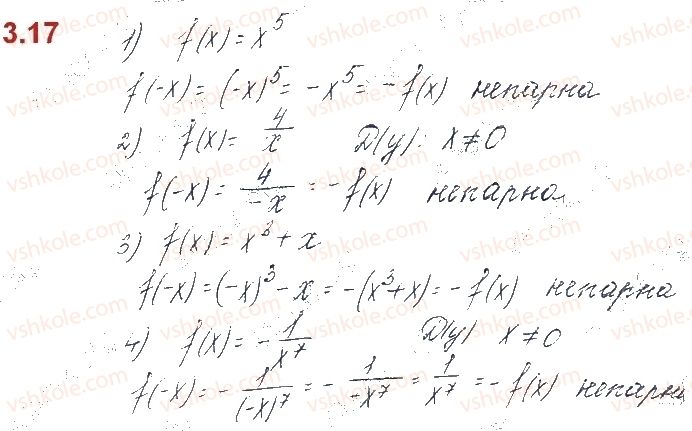 3.17
1) f(x) = x^5
f(-x) = (-x)^5 = -x^5 = -f(x) непарна
2) f(x) = 4/x Д(у): x ≠ 0
f(-x) = 4/-x = -f(x) непарна
3) f(x) = x^3 + x
f(-x) = (-x)^3 - x = -(x^3+x) = -f(x) непарна
4) f(x) = - 1/x^7 Д(у) x ≠ 0
f(-x) = - 1/(-x)^7 = - 1/-x^7 = 1/x^7 = -f(x) непарна
vshkole.com